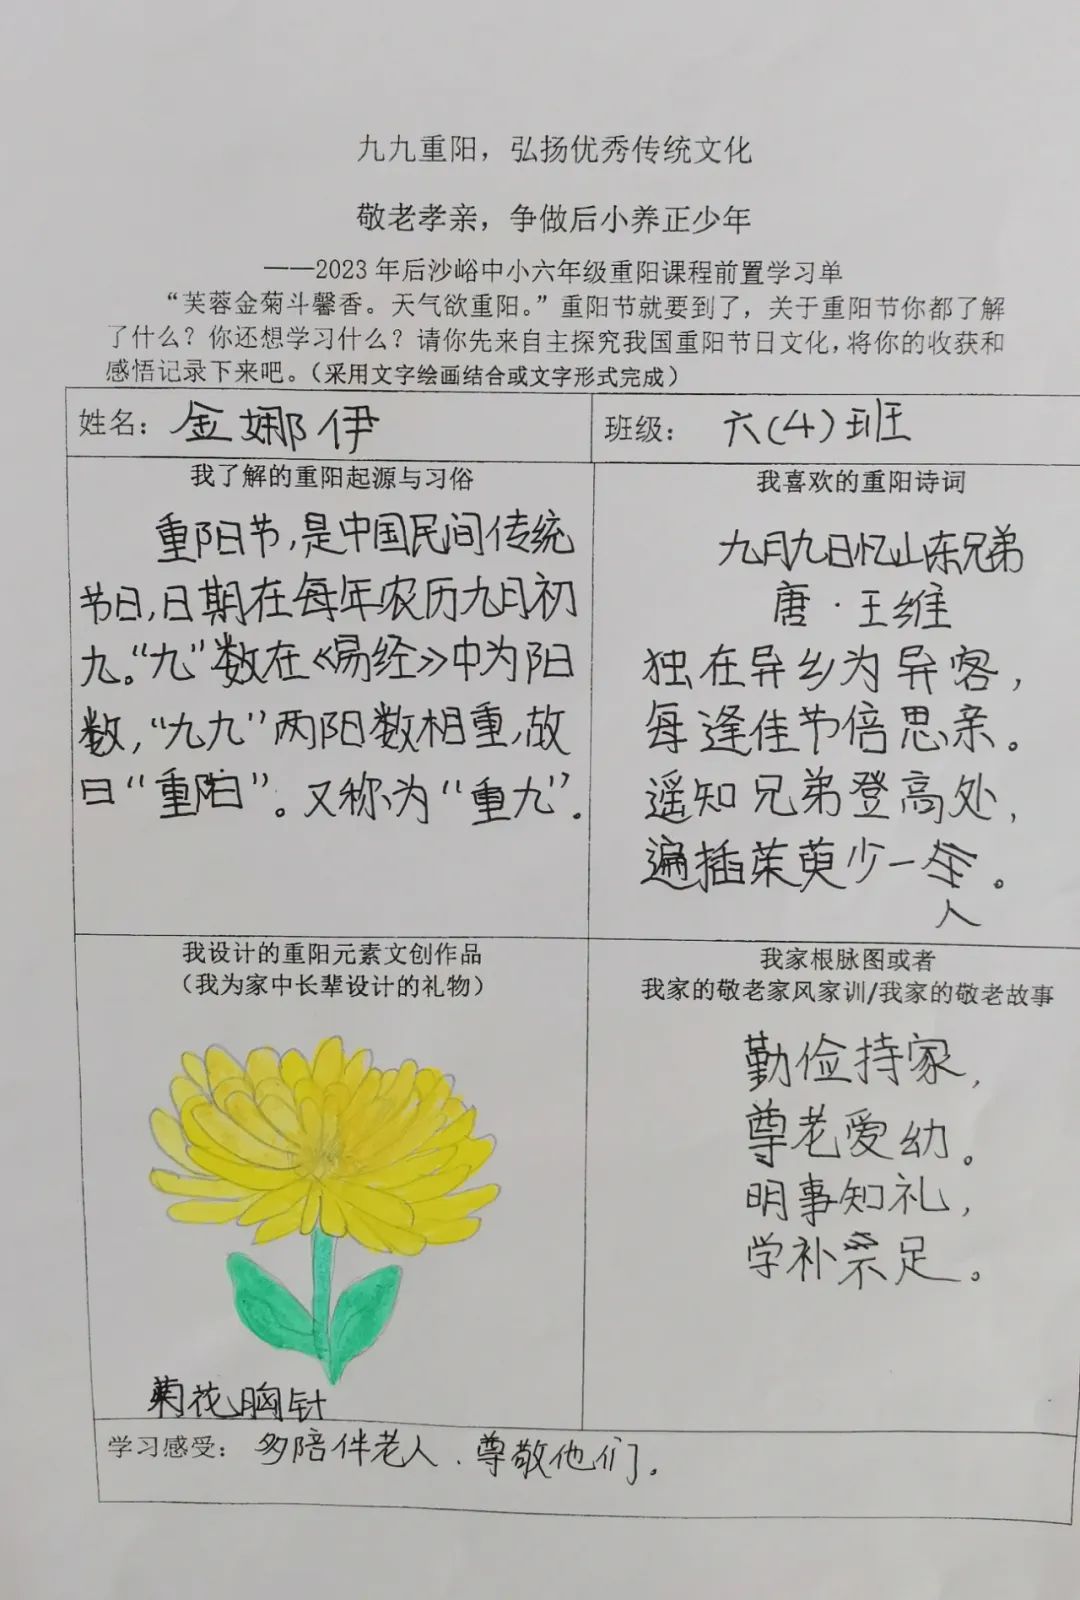 九九重阳，弘扬优秀传统文化
敬老孝亲，争做后小养正少年
——2023年后沙峪中小六年级重阳课程前置学习单
“芙蓉金菊斗馨香。天气欲重阳。”重阳节就要到了，关于重阳节你都了解
了什么？你还想学习什么？请你先来自主探究我国重阳节日文化，将你的收获和
感悟记录下来吧。（采用文字绘画结合或文字形式完成）
姓名：金娜伊
班级：六(4)班
我了解的重阳起源与习俗
重阳节,是中国民间传统
节日,日期在每年农历九月初
九。“九”数在《易经》中为阳
数,“九九”两阳数相重,故
曰“重阳”。又称为“重九”.
我喜欢的重阳诗词
九月九日忆山东兄弟
唐·王维
独在异乡为异客,
每逢佳节倍思亲。
遥知兄弟登高处,
遍插茱萸少一。
人
我设计的重阳元素文创作品
（我为家中长辈设计的礼物）
菊花胸针
我家根脉图或者
我家的敬老家风家训/我家的敬老故事
勤俭持家,
尊老爱幼。
明事知礼,
学补不足。
学习感受：多陪伴老人.尊敬他们。